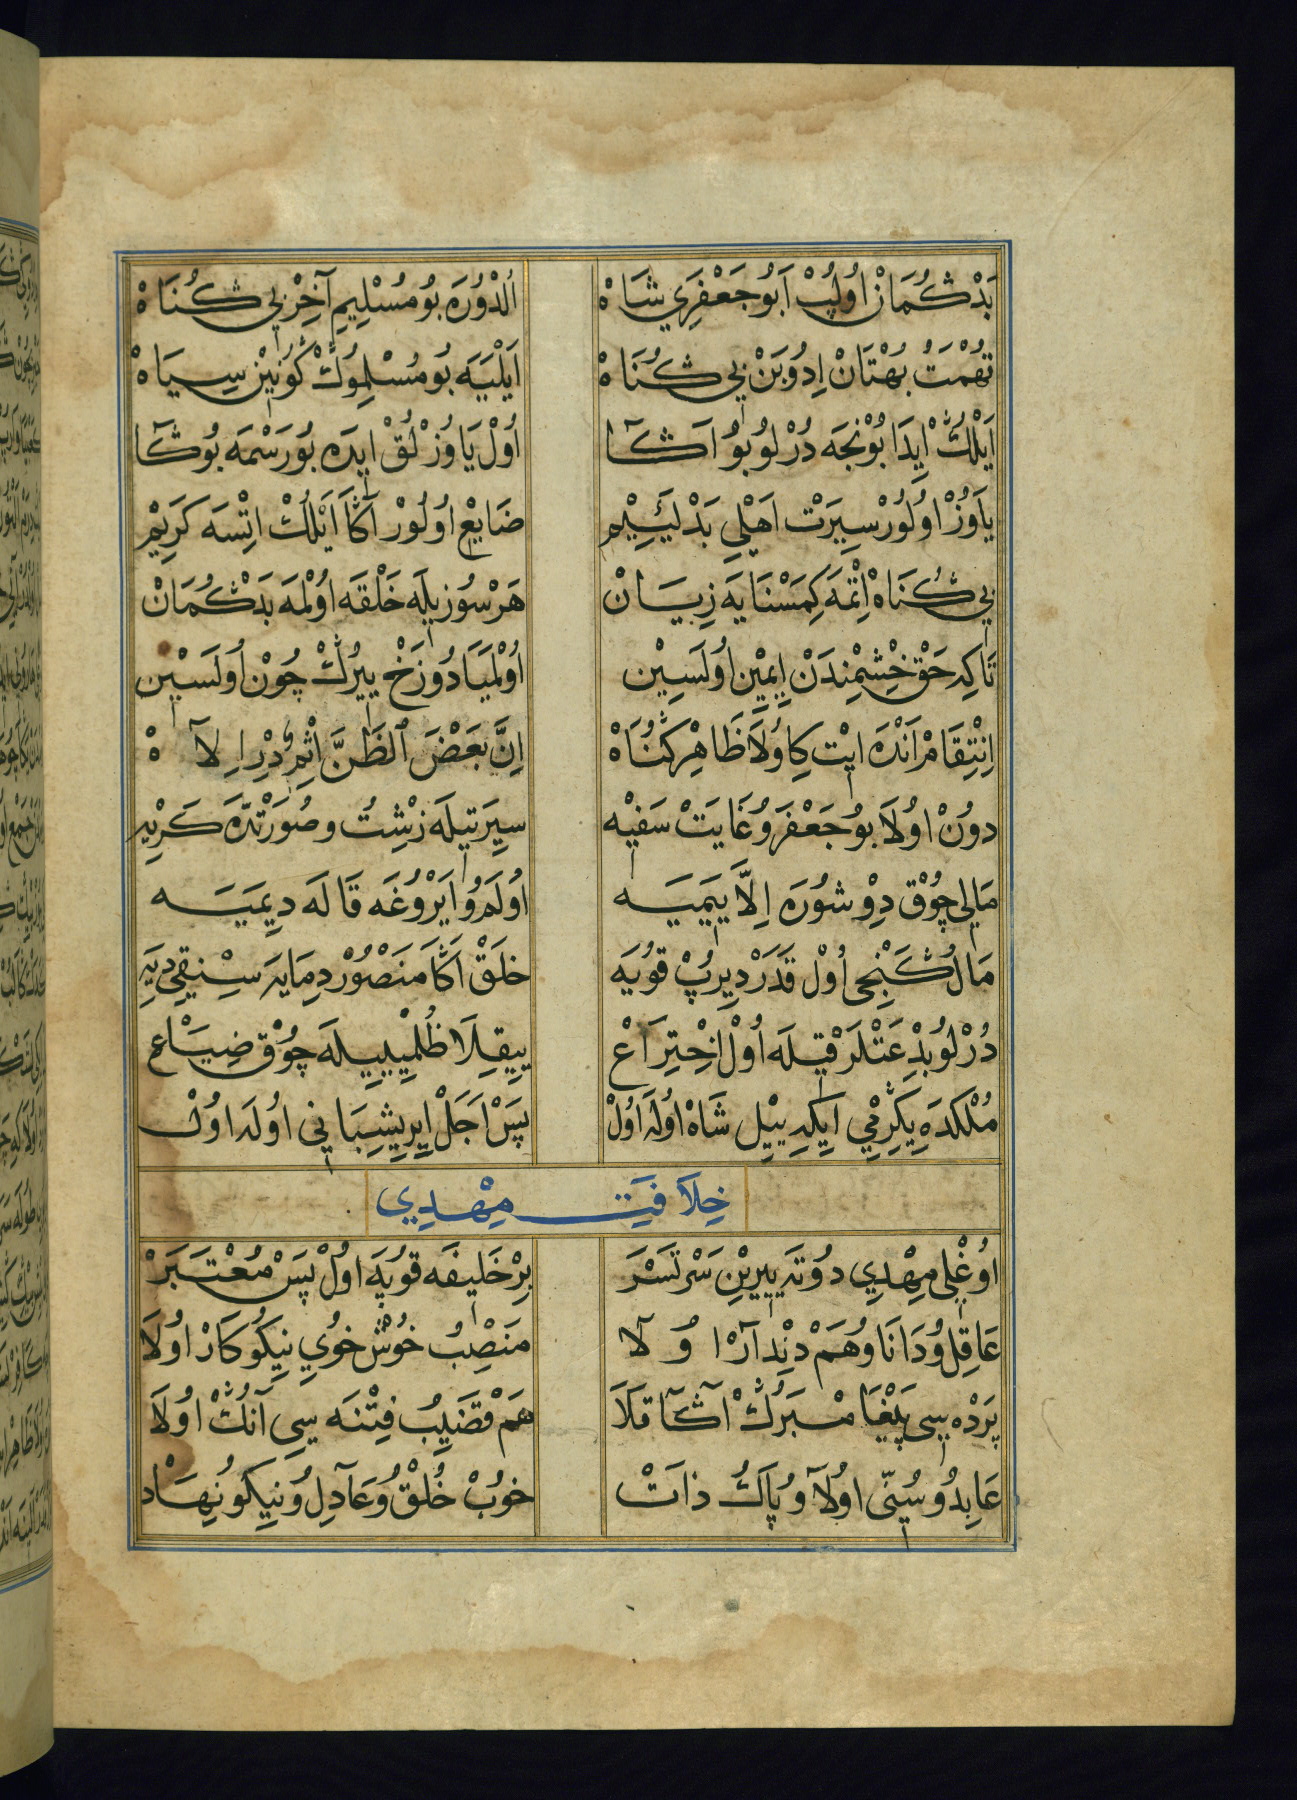 بَدْ كُمَانْ اُولُپْ اَبُو جَعْفَرِي شَاهْ اُلدُورَه بُو مُسْلِيمِ آخِرْ بِي كُنَاهْ
تُهْمَتُ بُهْتَانْ اِدُوبَنْ بِي كُنَاهْ اَيْلَيَه بُو مُسْلِمُوكْ كُونِيْنْ سِيَاهْ
اَيْلُكْ اِيدَا بُونْجَه دُرْلُو بُو اَكَا اُولْ يَاوُزْلُقْ اِيدَه بُو رَسْمَه بُوكَا
يَاوُزْ اُولُورْ سِيرَتْ اَهْلِي بَدْ لَئِيمْ ضَايِعْ اُولُورْ آكَا اَيْلُكْ اِتْسَه كَرِيمْ
بِي كُنَاهْ اِتْمَه كِمَسْنَايَه زِيَانْ هَرْ سُوزِيلَه خَلْقَه اُولْمَه بَدْ كُمَانْ
تَا كِه حَقْ خِشْمِنْدَنْ اِيمِينْ اُولَسِينْ اُولْمَيَا دُوزَخْ يِيرُكْ چُونْ اُولَسِينْ
اِنْتِقَامْ اَنْدَه اِيتْ كِه اُولَا ظَاهِرْ كُنَاهْ اِنَّ بَعْضَ الظَّنِّ اِثْمٌ دِرْ اِلَاهْ
دُونْ اُولَا بُو جَعْفَرُ و غَايَتْ سَفِيهْ سِيرَتِيلَه زِشْتُ و صُورَتْدَه كَرِيهْ
مَالِي چُوقْ دِوْشُورَه اِلَّا يِيمَيَه اُولَمُ و اَيْرُوغَه قَالَه دِيمَيَه
مَالُ كَنْجِي اُولْ قَدَرْ دِيرُپْ قُويَه خَلْقْ اَكَا مَنْصُورْ دِمَايَه سِنِيقِي دِيَه
دُرْلُو بِدْعَتْلَرْ قِيلَه اُولْ اِخْتِرَاعْ يِيقِلَا ظُلْمِيلَه چُوقْ ضِيَاعْ
مُلْكَدَه يِكِرْمِي اِيكِي يِيلْ شَاهْ اُولَه اُولْ پَسْ اَجَلْ اِيرِيشِبَانِي اُولَه اُولْ
خِلَافَتِ مِهْدِي
اُوغْلِي مِهْدِي دُوتَه يِيرِينْ سَرْتَسَرْ بِرْ خَلِيفَه قُويَه اُولْ پَسْ مُعْتَبَرْ
عَاقِلُ و دَانَا و هَمْ دِنْدَارْ اُولَا مَنْصِبُ خُوشْ خُوي نِيكُو كَارْ اُولَا
پَرْدَه سِي پَيْغَامْبَرُكْ آكَا قَلَا هَمْ قَضِيبُ فِتْنَه سِي آنُكْ اُولَا
عَابِدُ و سُنِّي اُولَا و پَاكْ ذَاتْ خُوبْ خُلْقُ و عَادِلُ و نِيكُو نِهَادْ